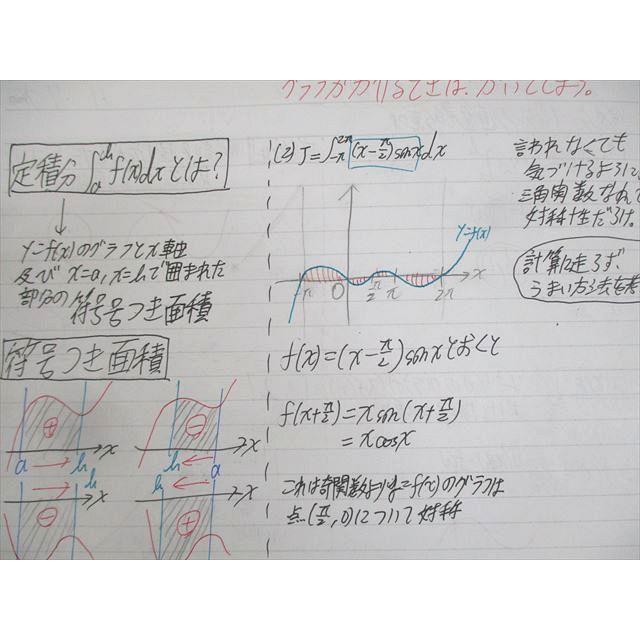 グラフがかけるときは、かいてしまう。
定積分 ∫ₐᵇ f(x)dx とは?
↓
y=f(x)のグラフとx軸
及び x=a, x=bで囲まれた
部分の 符号つき面積
符号つき面積
⊕ ⊖
a b x b a x
b x b x
⊖ ⊕
(2) J=∫_{-π}^{2π} (x-π/2) sinx dx
y=f(x)
-π O π/2 π 2π x
f(x)=(x-π/2)sinxとおくと
f(x+π/2)=x sin(x+π/2)
=x cosx
これは奇関数よりy=f(x)のグラフは
点(π/2, 0)について対称
言われなくても
気づけるように
三角関数なんて
対称性だらけ。
計算に走らず、
うまい方法を考